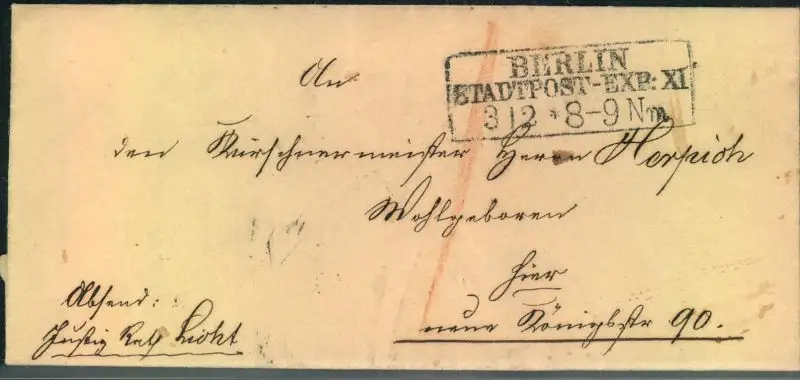 BERLIN
STADTPOST-EXP: XI
3 12 * 8-9 Nm
An
den Kürschnermeister Herrn Herpich
Wohlgeboren
hier
neue Königsstr 90.
Absend:
Justiz Rath Licht